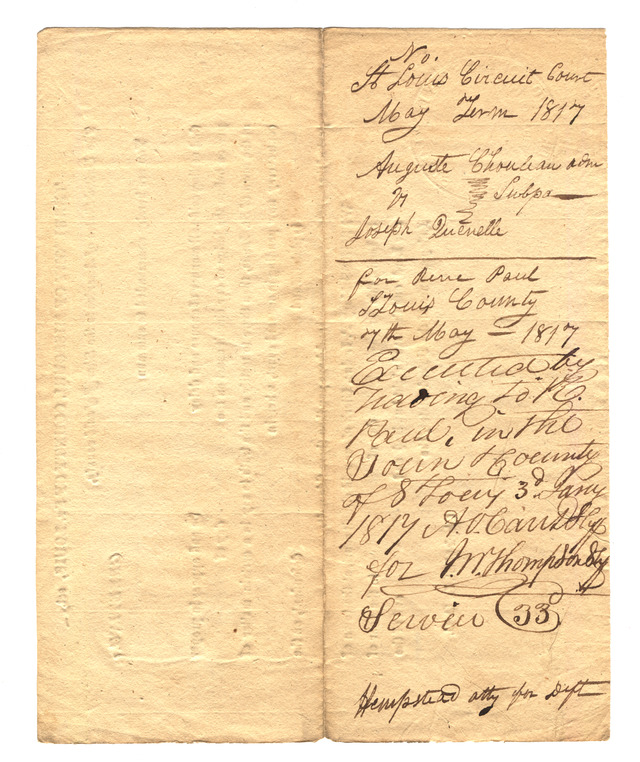 No.
St Louis Circuit Court
May Term 1817
Auguste Chouteau adm
vs Subpa
Joseph Quenelle
for Rene Paul
St Louis County
7th May - 1817
Executed by
reading to R.
Paul, in the
Town & County
of St Louis 3d
1817 A.
for J. W. Thompson Shff
Service 33
Hempstead atty for Deft